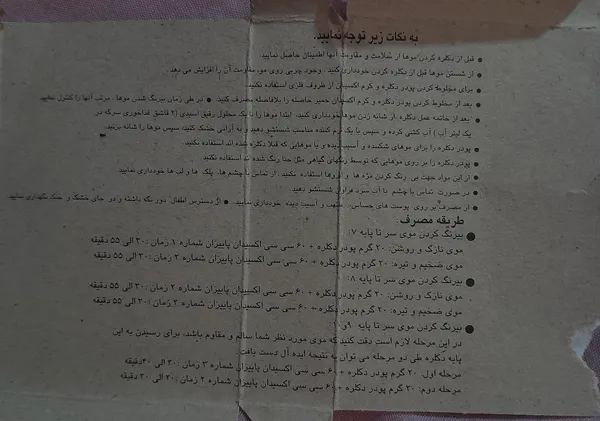 به نکات زیر توجه نمایید.
● قبل از دکلره کردن موها از سلامت و مقاومت آنها اطمینان حاصل نمایید.
● از شستن موها قبل از دکلره کردن خودداری کنید. وجود چربی روی مو، مقاومت آن را افزایش می دهد.
● برای مخلوط کردن پودر دکلره و کرم اکسیدان از ظروف فلزی استفاده نکنید.
● بعد از مخلوط کردن پودر دکلره و کرم اکسیدان خمیر حاصله را بلافاصله مصرف کنید. ● در طی زمان بیرنگ شدن موها، مرتب آنها را کنترل نمایید.
● بعد از خاتمه عمل دکلره، از شانه زدن موها خودداری کنید. ابتدا موها را با یک محلول رقیق اسیدی (۲ قاشق غذاخوری سرکه در
یک لیتر آب) آب کشی کرده و سپس با یک نرم کننده مناسب شستشو دهید و به آرامی خشک کنید، سپس موها را شانه بزنید.
● پودر دکلره را برای موهای شکننده و آسیب دیده و یا موهایی که قبلا دکلره شده اند استفاده نکنید.
● پودر دکلره را بر روی موهایی که توسط رنگهای گیاهی مثل حنا رنگ شده اند استفاده نکنید.
● از این مواد جهت بی رنگ کردن مژه ها و ابروها استفاده نکنید. از تماس با چشم ها، پلک ها و لب ها خودداری نمایید.
● در صورت تماس با چشم با آب سرد فراوان شستشو دهید.
● از مصرف بر روی پوست های حساس، ملتهب و آسیب دیده خودداری نمایید. ● از دسترس اطفال دور نگه داشته و در جای خشک و خنک نگهداری نمایید.
طریقه مصرف:
● بیرنگ کردن موی سر تا پایه ۷:
موی نازک و روشن: ۲۰ گرم پودر دکلره + ۶۰ سی سی اکسیدان پاییزان شماره ۱ زمان: ۳۰ الی ۵۵ دقیقه
موی ضخیم و تیره: ۲۰ گرم پودر دکلره + ۶۰ سی سی اکسیدان پاییزان شماره ۲ زمان: ۳۰ الی ۵۵ دقیقه
● بیرنگ کردن موی سر تا پایه ۸:
موی نازک و روشن: ۲۰ گرم پودر دکلره + ۶۰ سی سی اکسیدان پاییزان شماره ۲ زمان: ۳۰ الی ۵۵ دقیقه
موی ضخیم و تیره: ۲۰ گرم پودر دکلره + ۶۰ سی سی اکسیدان پاییزان شماره ۳ زمان: ۳۰ الی ۵۵ دقیقه
● بیرنگ کردن موی سر تا پایه ۹و۱۰:
در این مرحله لازم است دقت کنید که موی مورد نظر شما سالم و مقاوم باشد، برای رسیدن به این
پایه دکلره طی دو مرحله می توان به نتیجه ایده آل دست یافت:
مرحله اول: ۲۰ گرم پودر دکلره + ۶۰ سی سی اکسیدان پاییزان شماره ۳ زمان: ۳۰ الی ۴۰ دقیقه
مرحله دوم: ۳۰ گرم پودر دکلره + ۶۰ سی سی اکسیدان پاییزان شماره ۲ زمان: ۲۰ الی ۳۰ دقیقه